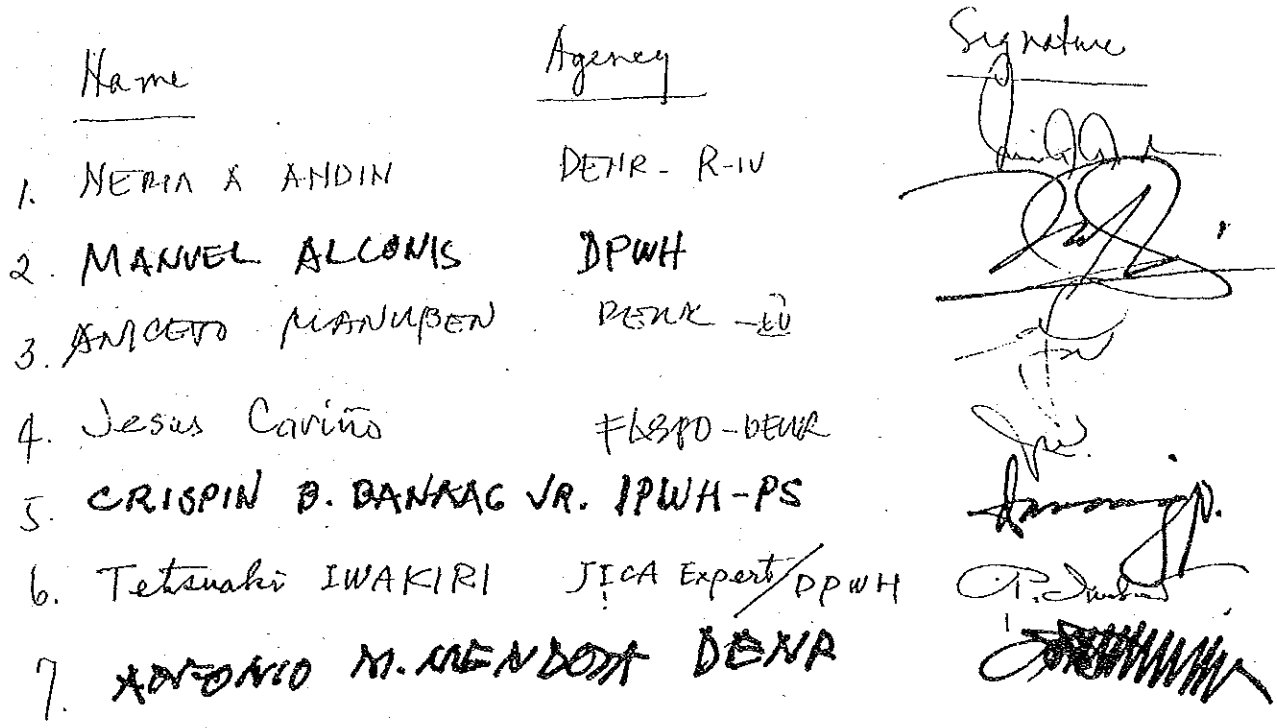 Name Agency Signature
1. NERIA A ANDIN DENR - R-IV
2. MANUEL ALCONIS DPWH
3. ANICETO MANUBEN DENR - IV
4. Jesus Cariño DENR
5. CRISPIN B. BANAAG JR. DPWH-PS
6. Tetsuaki IWAKIRI JICA Expert/DPWH
7. ANTONIO M. MENDOZA DENR